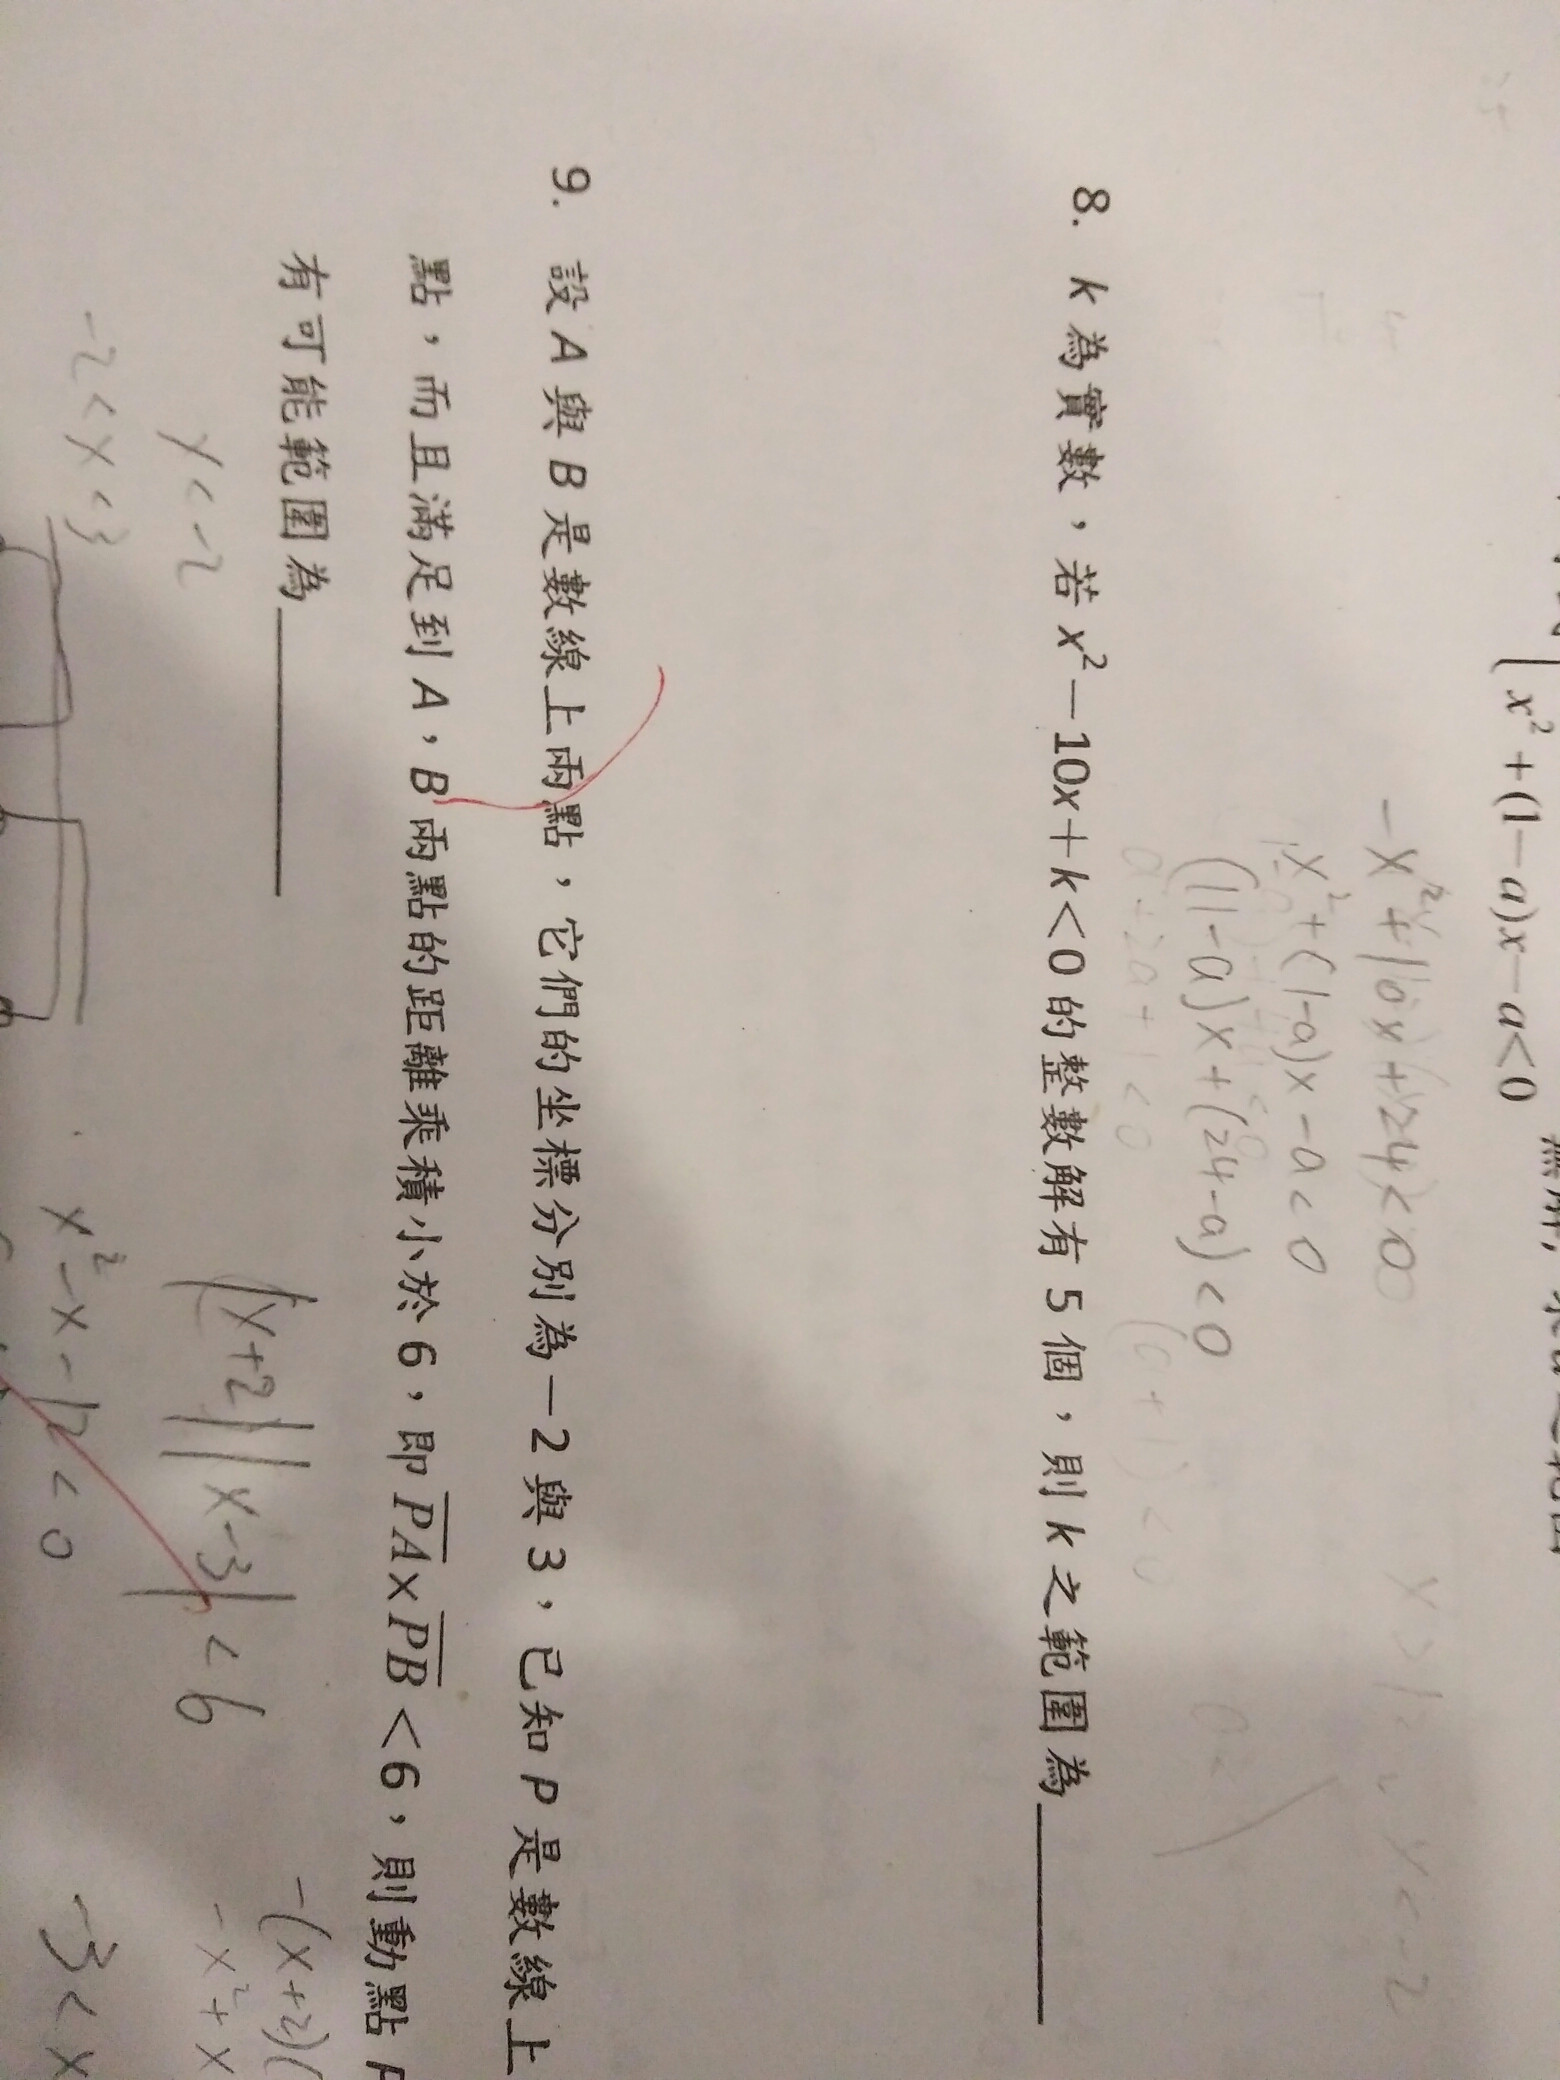 x²+(1−a)x−a<0
−x²+10x+24<0
x²+(1−a)x−a<0
(11−a)x+(24−a)<0
8. k 為實數，若 x²−10x+k<0 的整數解有 5 個，則 k 之範圍為
9. 設 A 與 B 是數線上兩點，它們的坐標分別為−2 與 3，已知 P 是數線上
點，而且滿足到 A，B 兩點的距離乘積小於 6，即 PA×PB<6，則動點 P
有可能範圍為
|x+2||x−3|<6
−(x+2)(
−x²+x
x<−2
−2<x<3
x²−x−12<0
−3<x